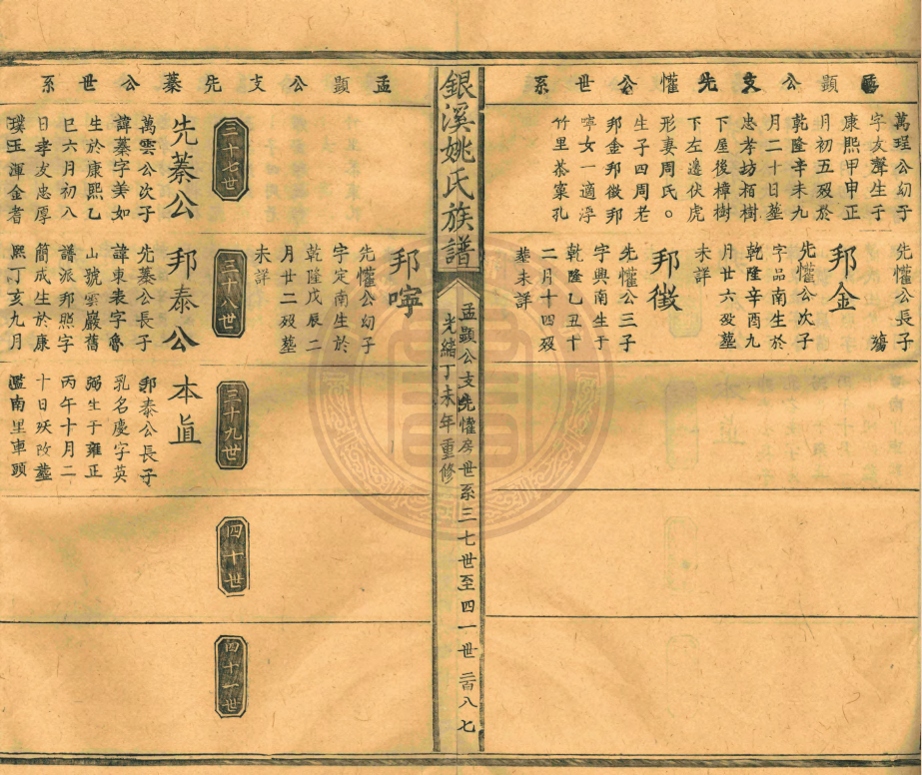 孟顯公支先懽公世系
萬珵公幼子
字友聲生子
康熙甲申正
月初五歿於
乾隆辛未九
月二十日墓
忠考坊栢樹
下屋後樟樹
下左邊伏虎
形妻周氏。
生子四周老
邦金邦徵邦
寧女一適浮
竹里茶窠孔
先懽公長子
殤
邦金
先懽公次子
字品南生於
乾隆辛酉九
月廿六歿墓
未詳
邦徵
先懽公三子
字興南生于
乾隆乙丑十
二月十四歿
葬未詳
銀溪姚氏族譜
孟顯公支先懽房世系三七世至四一世 二百八七
光緒丁未年重修
孟顯公支先蓁公世系
邦寧
先懽公幼子
字定南生於
乾隆戊辰二
月廿二歿墓
未詳
三十七世
先蓁公
萬雲公次子
諱蓁字美如
生於康熙乙
巳六月初八
日孝友忠厚
璞玉渾金耆
三十八世
邦泰公
先蓁公長子
諱東表字魯
山號雲巖舊
譜派邦熙字
簡成生於康
熙丁亥九月
三十九世
本眞
邦泰公長子
乳名慶字英
弼生于雍正
丙午十月二
十日歿改塟
濫南里車頭
四十世
四十一世